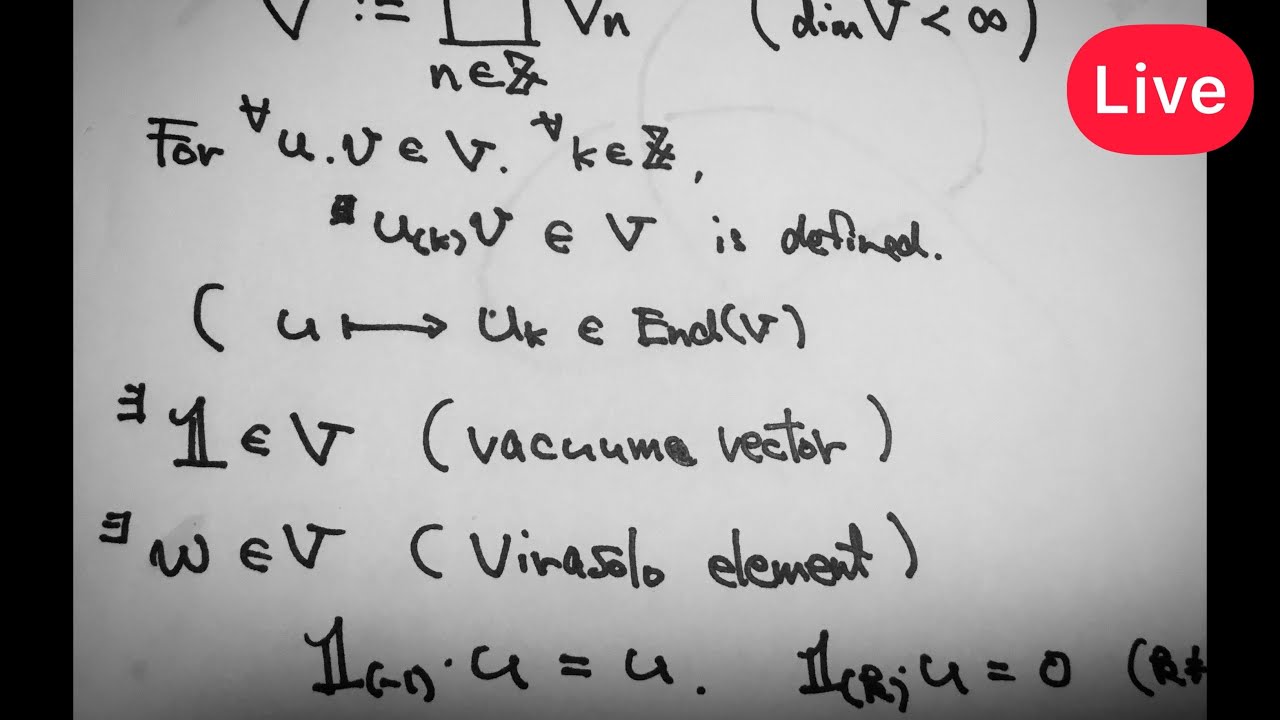 V := ∐ Vn (dim V < ∞)
n∈ℤ
Live
For ∀u.v ∈ V. ∀k∈ℤ,
∃u(k)v ∈ V is defined.
( u ⟼ uk ∈ End(V)
∃𝟙 ∈ V (vacuume vector)
∃w ∈ V (Virasolo element)
𝟙(-1)·u = u. 𝟙(k);u = 0 (k≠